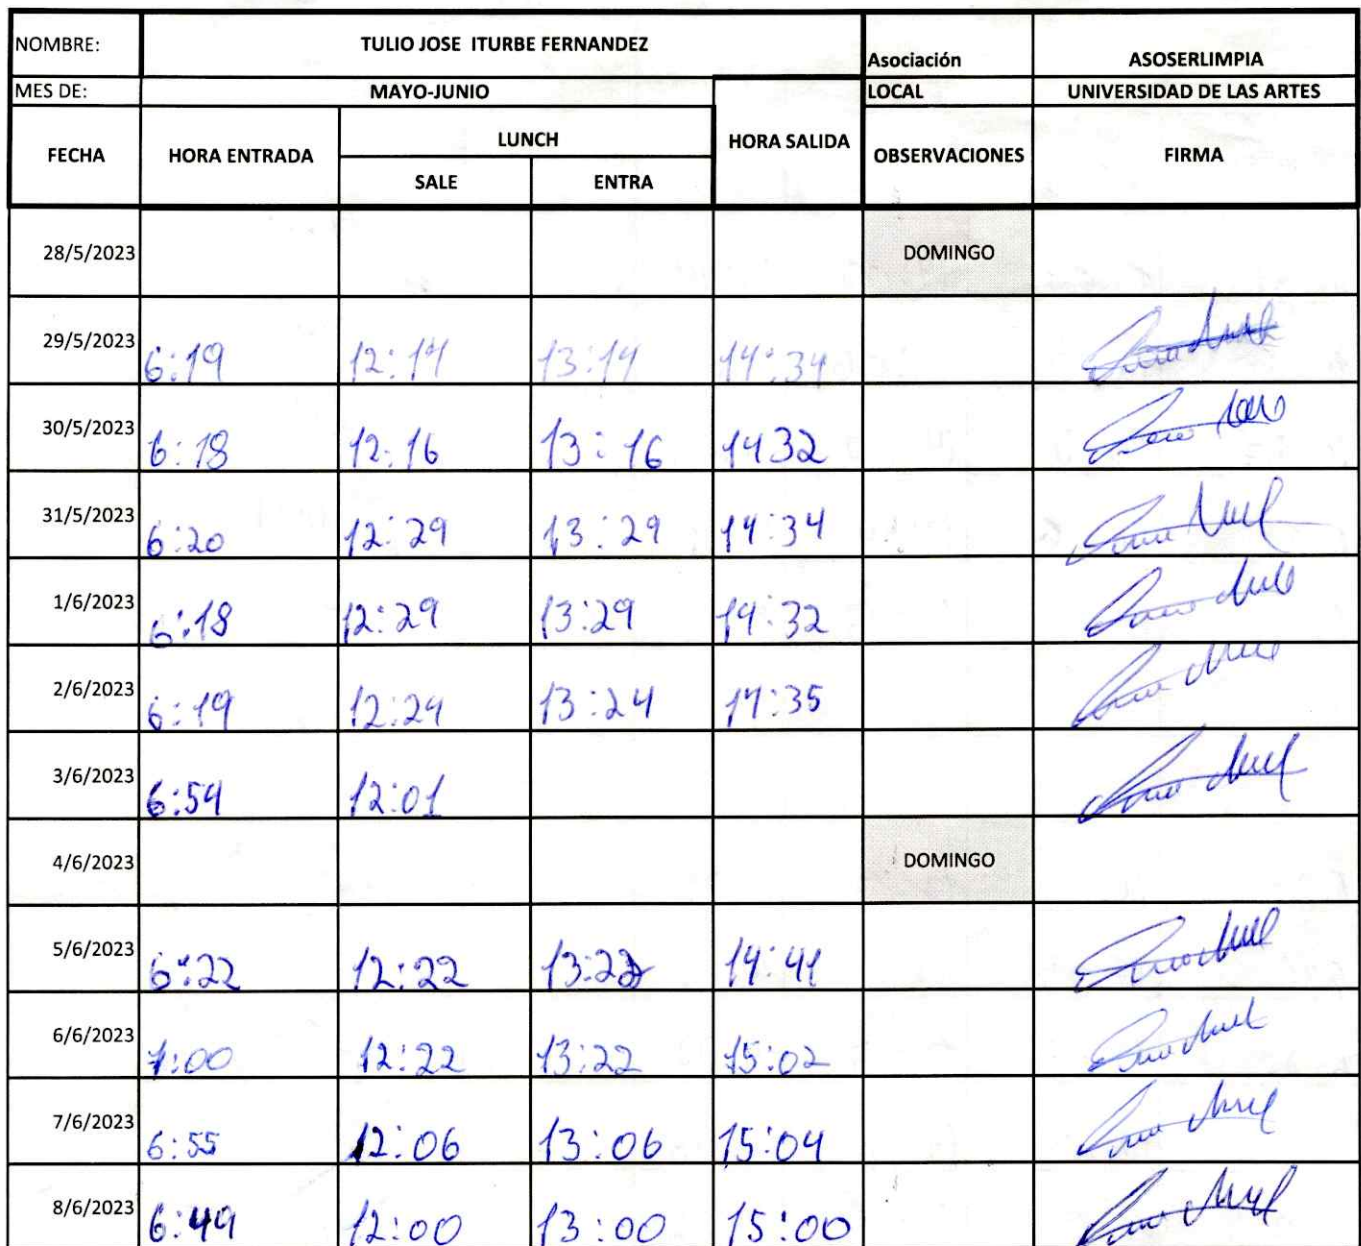 NOMBRE: TULIO JOSE ITURBE FERNANDEZ Asociación ASOSERLIMPIA
MES DE: MAYO-JUNIO LOCAL UNIVERSIDAD DE LAS ARTES
FECHA HORA ENTRADA LUNCH HORA SALIDA OBSERVACIONES FIRMA
SALE ENTRA
28/5/2023 DOMINGO
29/5/2023 6:19 12:14 13:14 14:34
30/5/2023 6:18 12:16 13:16 1432
31/5/2023 6:20 12:29 13:29 14:34
1/6/2023 6:18 12:29 13:29 14:32
2/6/2023 6:19 12:24 13:24 14:35
3/6/2023 6:54 12:01
4/6/2023 DOMINGO
5/6/2023 6:22 12:22 13:22 14:41
6/6/2023 7:00 12:22 13:22 15:02
7/6/2023 6:55 12:06 13:06 15:04
8/6/2023 6:49 12:00 13:00 15:00